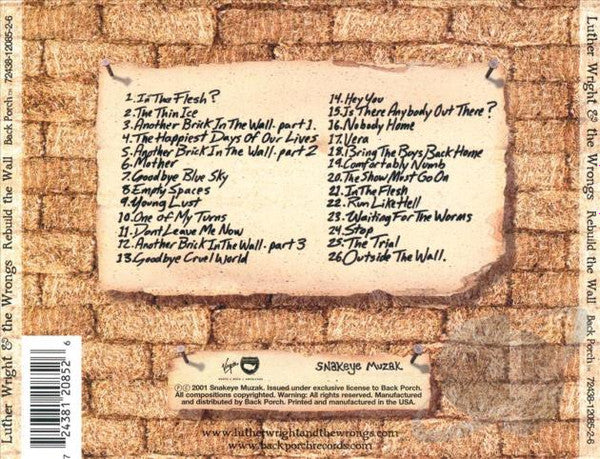 Luther Wright & the Wrongs Rebuild the Wall Back Porch 72438-12085-2-6
1. In The Flesh?
2. The Thin Ice
3. Another Brick In The Wall. part 1.
4. The Happiest Days Of Our Lives
5. Another Brick In The Wall. part 2
6. Mother
7. Goodbye Blue Sky
8. Empty Spaces
9. Young Lust
10. One of My Turns
11. Dont Leave Me Now
12. Another Brick In The Wall. part 3
13. Goodbye Cruel World
14. Hey You
15. Is There Anybody Out There?
16. Nobody Home
17. Vera
18. Bring The Boys Back Home
19. Comfortably Numb
20. The Show Must Go On
21. In The Flesh
22. Run Like Hell
23. Waiting For The Worms
24. Stop
25. The Trial
26. Outside The Wall.
Virgin
Snakeye Muzak.
℗© 2001 Snakeye Muzak. Issued under exclusive license to Back Porch.
All compositions copyrighted. Warning: All rights reserved. Manufactured
and distributed by Back Porch. Printed and manufactured in the USA.
www.lutherwrightandthewrongs.com
www.backporchrecords.com
7 24381 20852 6
Luther Wright & the Wrongs Rebuild the Wall Back Porch 72438-12085-2-6